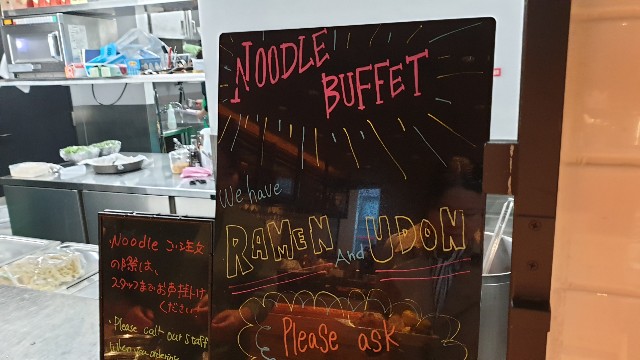 NOODLE
BUFFET
We have
RAMEN And UDON
Please ask
・Noodle ご注文
の際は、
スタッフまでお声掛け
ください!
・Please call our staff
when you ordering